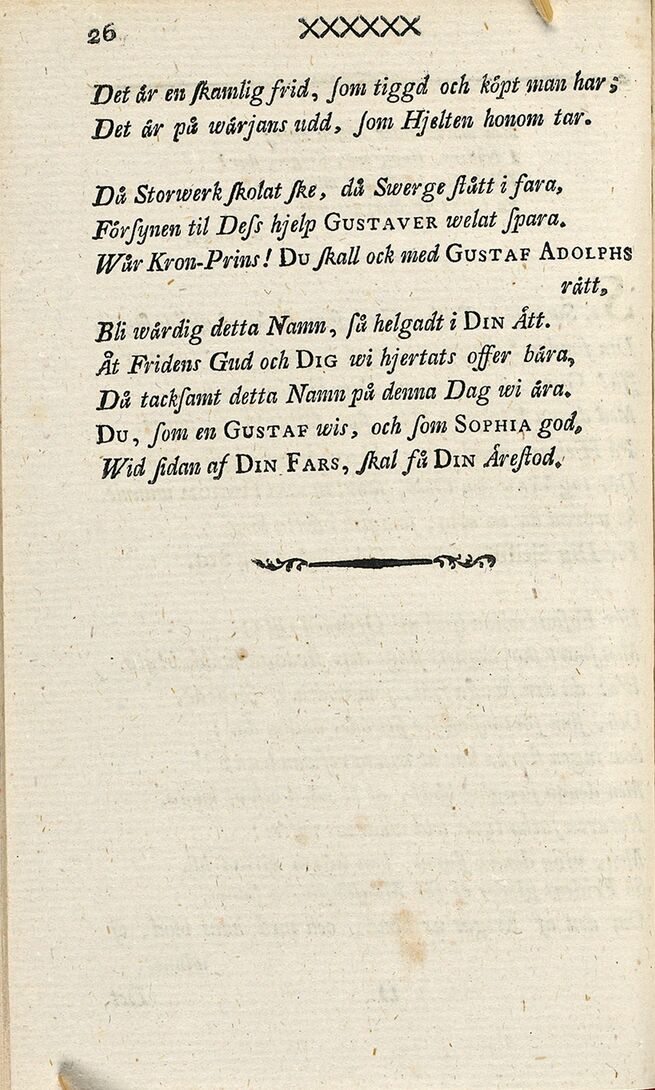 26 XXXXXX
Det år en ſkamlig frid, ſom tiggd och köpt man har;
Det år på wårjans udd, ſom Hjelten honom tar.
Då Storwerk ſkolat ſke, då Swerge ſtått i fara,
Förſynen til Deſs hjelp GUSTAVER welat ſpara.
Wår Kron-Prins! DU ſkall ock med GUSTAF ADOLPHS
rått,
Bli wårdig detta Namn, ſå helgadt i DIN Ått.
Åt Fridens Gud och DIG wi hjertats offer båra,
Då tackſamt detta Namn på denna Dag wi åra.
DU, ſom en GUSTAF wis, och ſom SOPHIA god,
Wid ſidan af DIN FARS, ſkal få DIN Åreſtod.